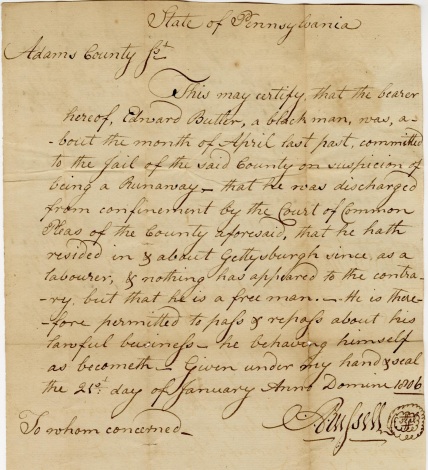 State of Pennsylvania
Adams County Sct
This may certify, that the bearer
hereof, Edward Butler, a black man, was, a-
-bout the month of April last past, committed
to the Jail of the said County on suspicion of
being a Runaway – that he was discharged
from confinement by the Court of Common
Pleas of the County aforesaid, that he hath
resided in & about Gettysburgh since, as a
labourer, & nothing has appeared to the contra-
-ry, but that he is a free man. – He is there-
-fore permitted to pass & repass about his
lawful business – he behaving himself
as becometh – Given under my hand & seal
the 21st day of January Anno Domini 1806
To whom concerned – Russell